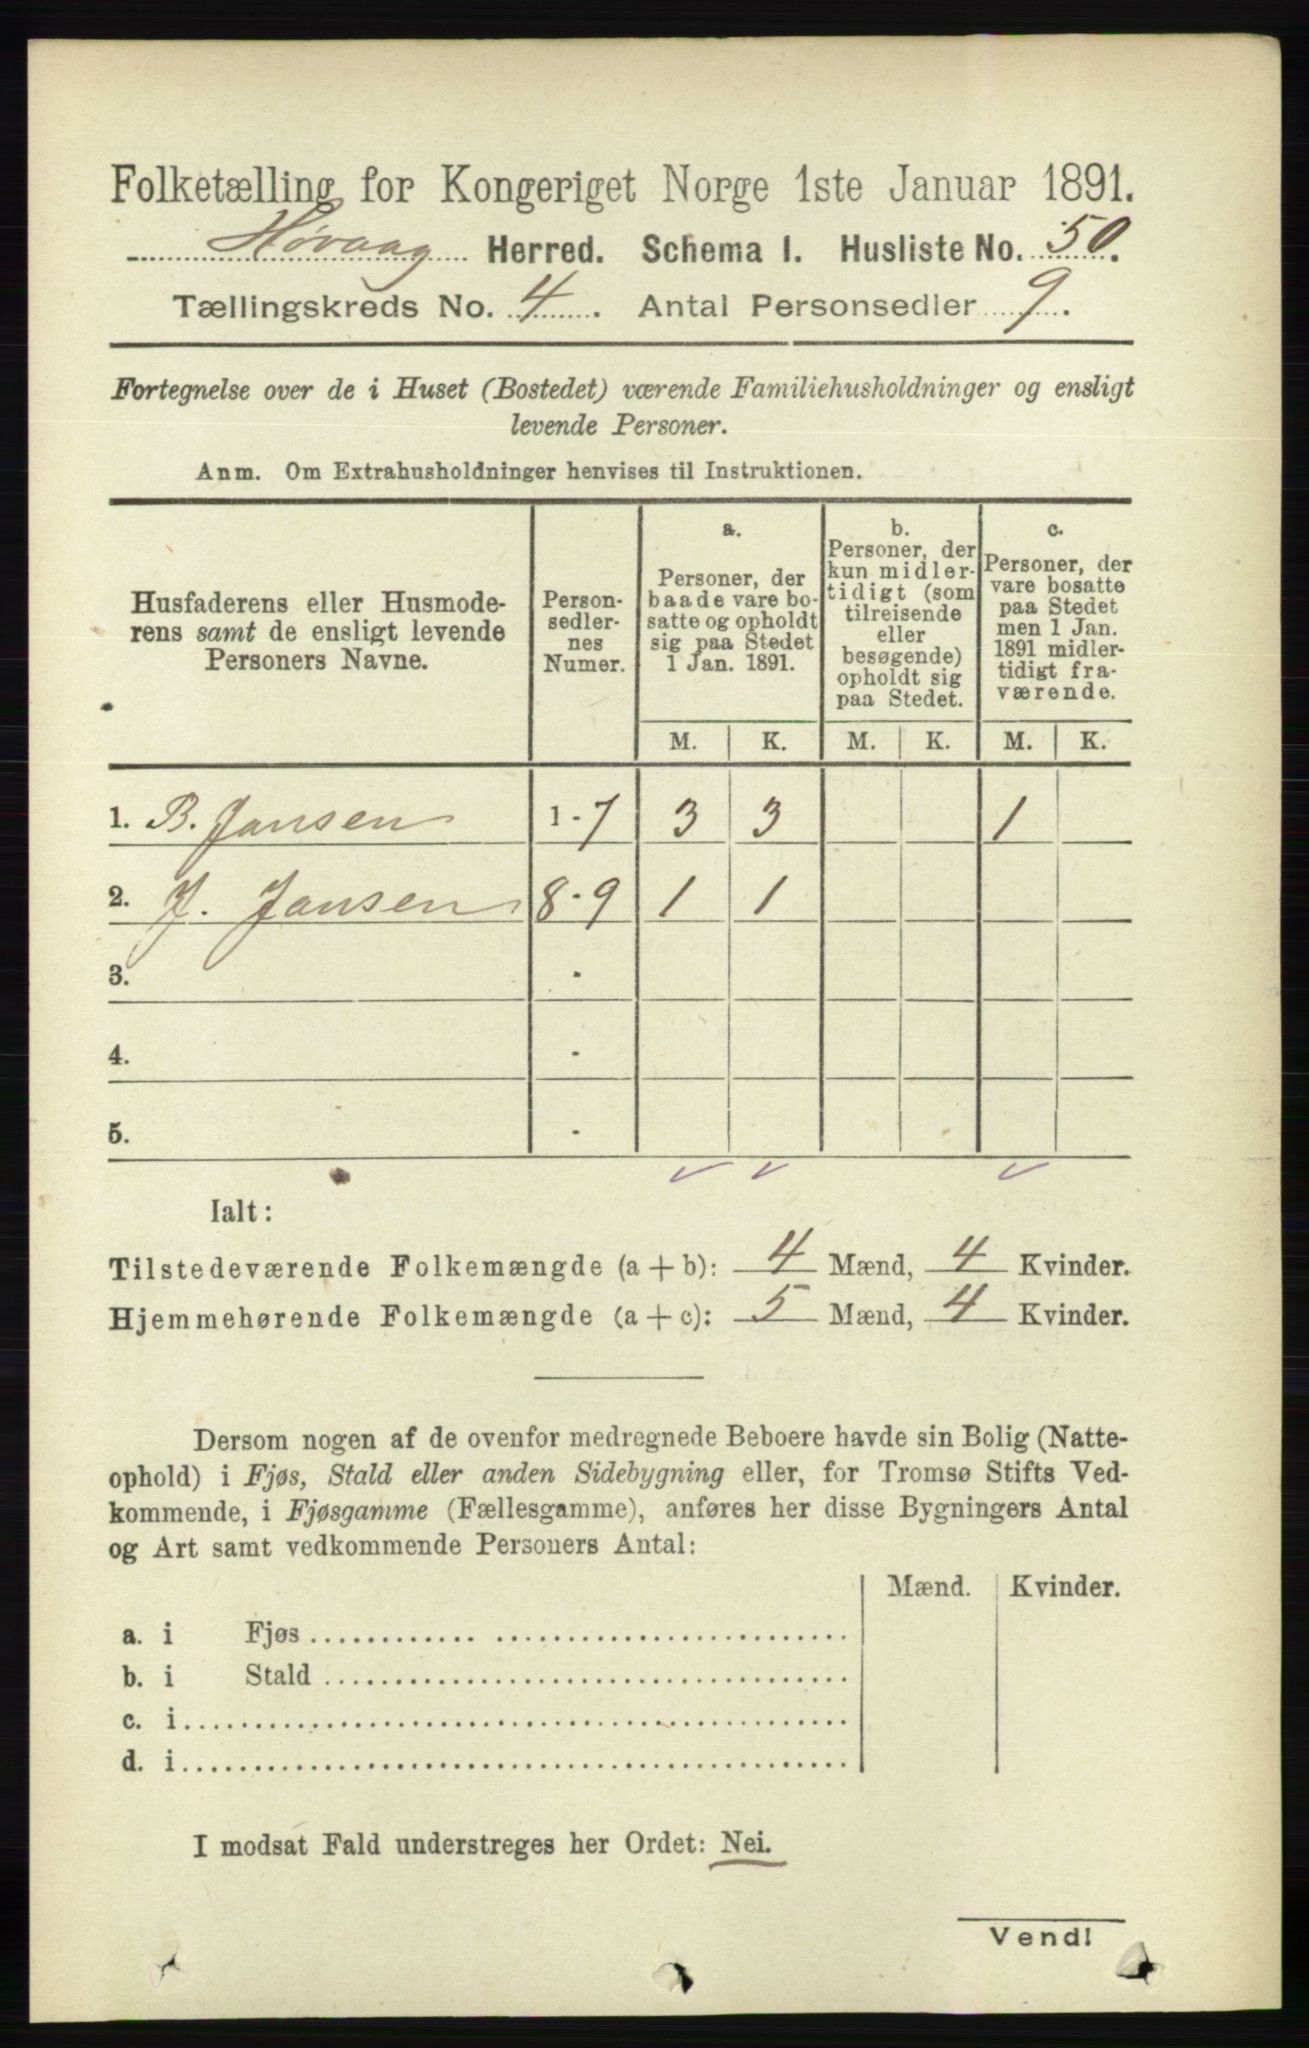 Folketælling for Kongeriget Norge 1ste Januar 1891.
Høvaag Herred. Schema I. Husliste No. 50.
Tællingskreds No. 4. Antal Personsedler 9.
Fortegnelse over de i Huset (Bostedet) værende Familiehusholdninger og ensligt
levende Personer.
Anm. Om Extrahusholdninger henvises til Instruktionen.
Husfaderens eller Husmode-
rens samt de ensligt levende
Personers Navne.
Person-
sedler-
nes
Numer.
a.
Personer, der
baade vare bo-
satte og opholdt
sig paa Stedet
1 Jan. 1891.
b.
Personer, der
kun midler-
tidigt (som
tilreisende
eller
besøgende)
opholdt sig
paa Stedet.
c.
Personer, der
vare bosatte
paa Stedet
men 1 Jan.
1891 midler-
tidigt fra-
værende.
M. K. M. K. M. K.
1. B. Jansen 1-7 3 3 1
2. J. Jansen 8-9 1 1
3. -
4. -
5. -
Ialt:
Tilstedeværende Folkemængde (a + b): 4 Mænd, 4 Kvinder.
Hjemmehørende Folkemængde (a + c): 5 Mænd, 4 Kvinder.
Dersom nogen af de ovenfor medregnede Beboere havde sin Bolig (Natte-
ophold) i Fjøs, Stald eller anden Sidebygning eller, for Tromsø Stifts Ved-
kommende, i Fjøsgamme (Fællesgamme), anføres her disse Bygningers Antal
og Art samt vedkommende Personers Antal:
Mænd. Kvinder.
a. i Fjøs
b. i Stald
c. i
d. i
I modsat Fald understreges her Ordet: Nei.
Vend!